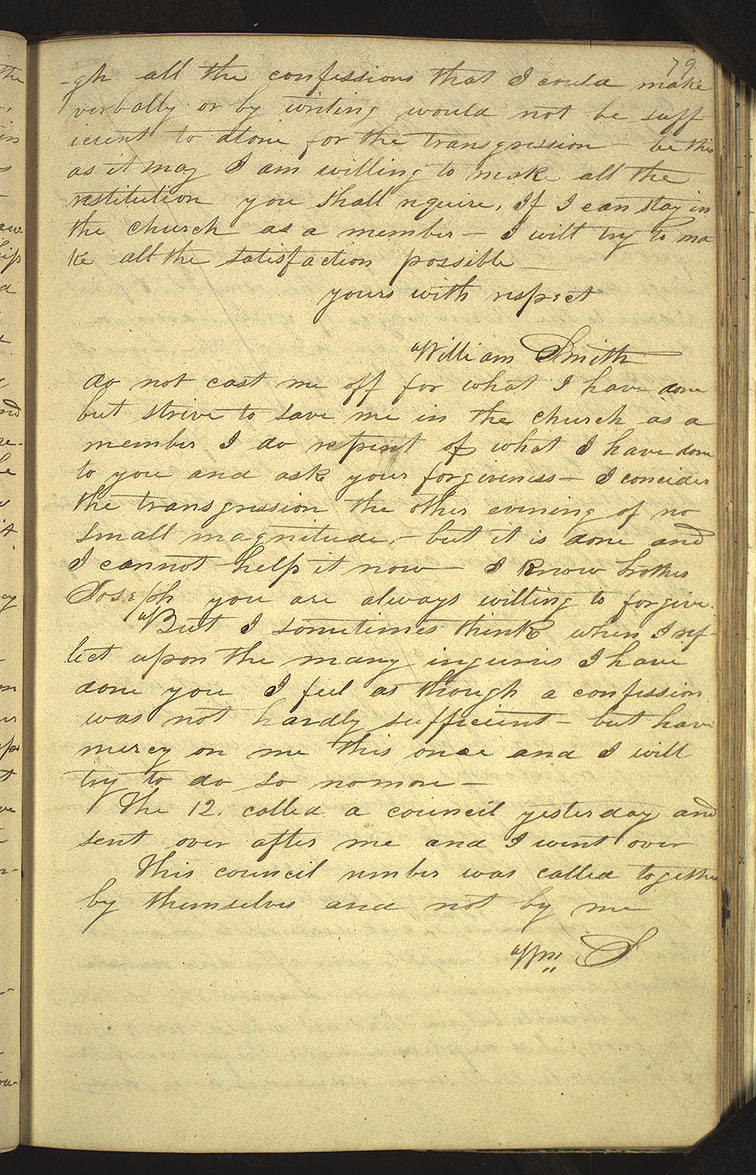 79
-gh all the confessions that I could make
verbally or by writing would not be suff
icient to atone for the transgression — be this
as it may I am willing to make all the
restitution you shall require, If I can stay in
the church as a member — I will try to ma
ke all the satisfaction possible —
yours with respect
William Smith
do not cast me off for what I have done
but strive to save me in the church as a
member I do repent of what I have done
to you and ask your forgiveness — I concider
the transgression the other evening of no
small magnitude, — but it is done and
I cannot help it now — I know brother
Joseph you are always willing to forgive.
But I sometimes think when I ref-
lect upon the many inguries I have
done you I feel as though a confession
was not hardly sufficient — but have
mercy on me this once and I will
try to do so no more —
The 12. called a council yesterday and
sent over after me and I went over
This council rember was called together
by themselves and not by me
Wm S